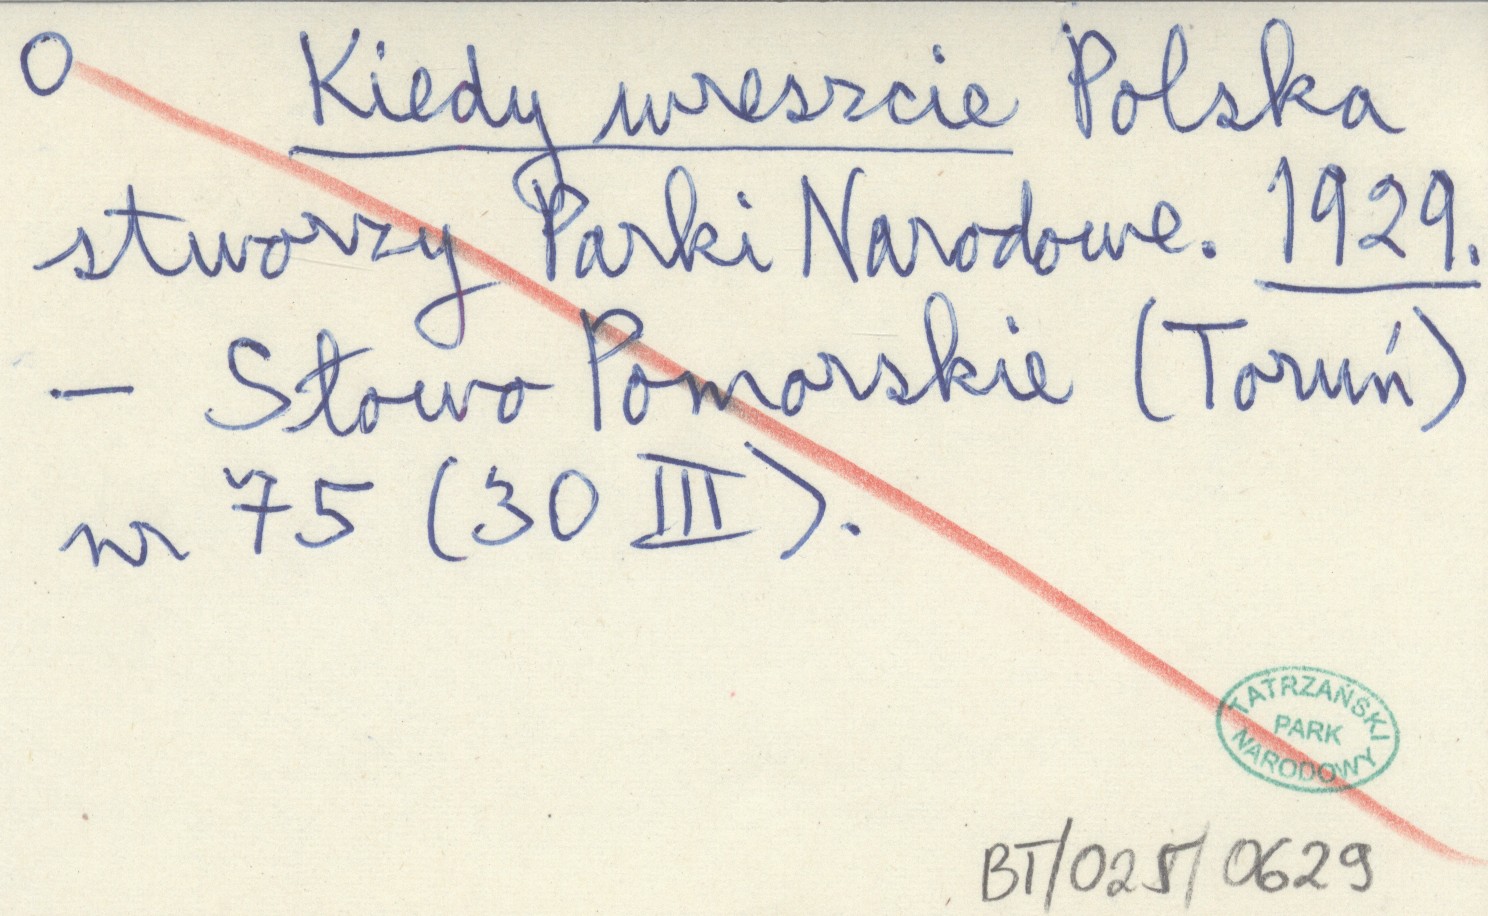 O Kiedy wreszcie Polska
stworzy Parki Narodowe. 1929.
– Słowo Pomorskie (Toruń)
nr 75 (30 III).
TATRZAŃSKI
PARK
NARODOWY
BT/025/0629